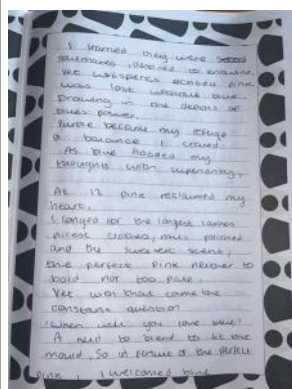 I learned they were
soulmates, destined to entwine,
The whispers echoed pink
was lost without blue
Drowning in the depths of
blues power,
Purple became my refuge
a balance I craved
As blue flooded my
thoughts with superiority,
At 12 pink reclaimed my
heart,
I longed for the largest
nicest clothes, nails painted
and the sweetest scent,
the perfect pink neither to
bold not too pale,
Yet with that came the
constant question
"When will you love blue?
A need to blend to fit the
mould, So in pursuit of the perfect
pink, I welcomed blue